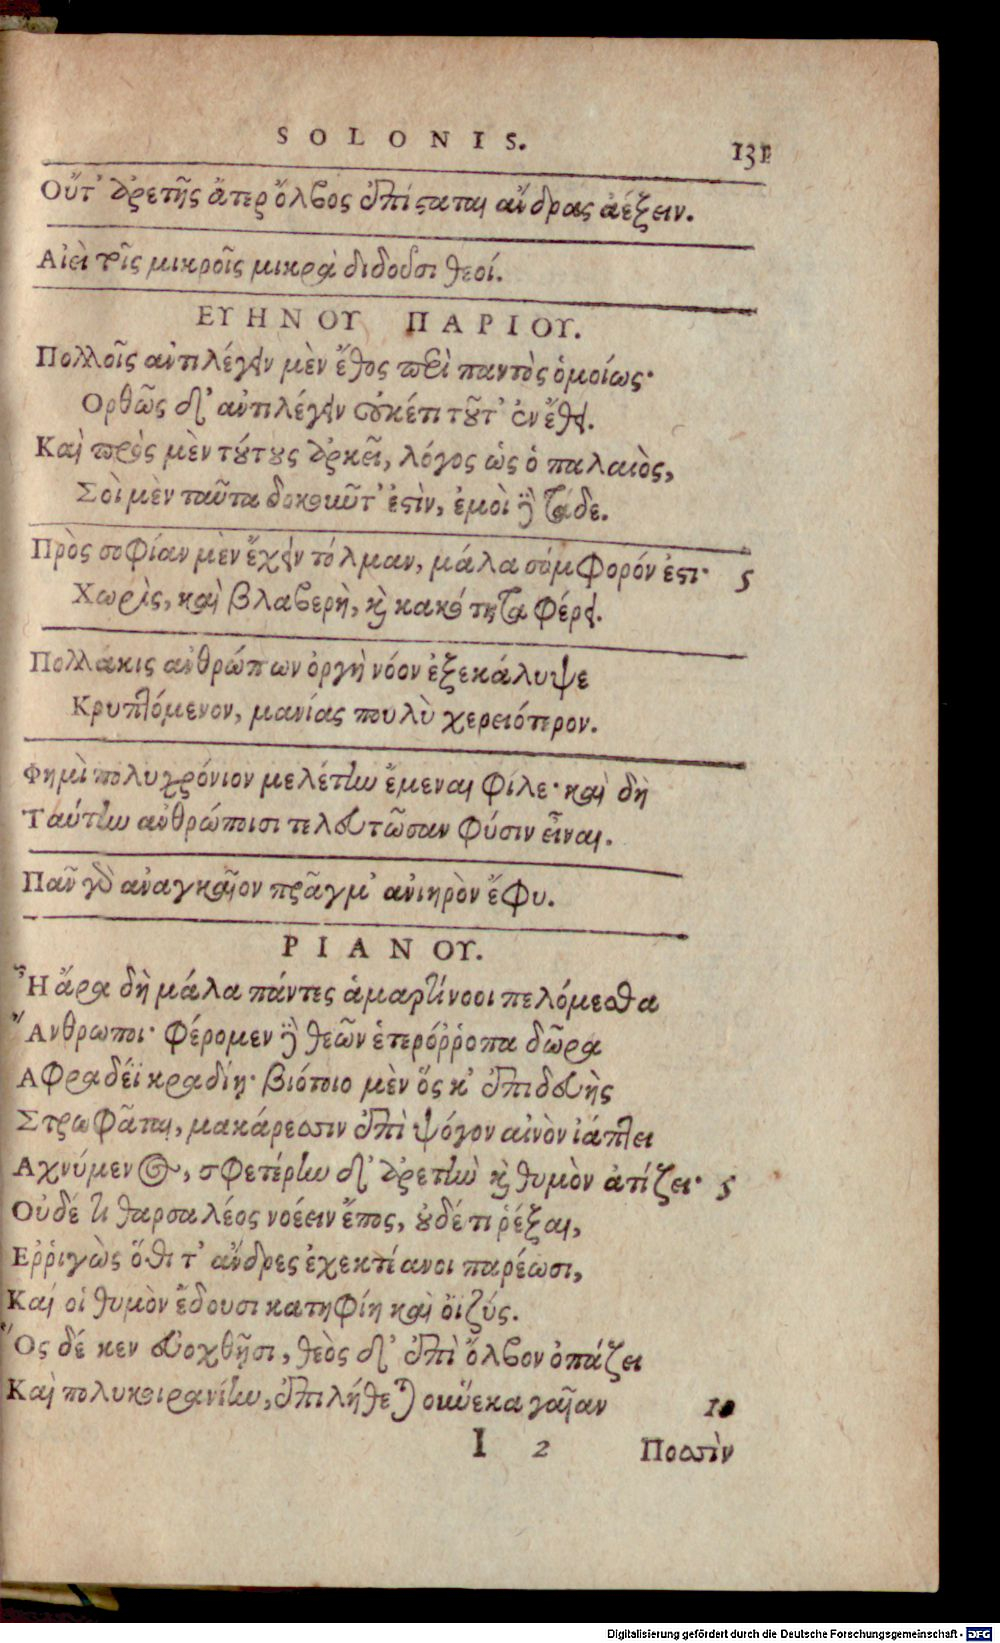 SOLONIS. 131
Οὔτ' ἀρετῆς ἄτερ ὄλβος ἐπίσταται ἄνδρας ἀέξειν.
Αἰεὶ τοῖς μικροῖς μικρὰ διδοῦσι θεοί.
ΕΥΗΝΟΥ ΠΑΡΙΟΥ.
Πολλοῖς ἀντιλέγειν μὲν ἔθος περὶ παντὸς ὁμοίως·
Ορθῶς δ' ἀντιλέγειν οὐκέτι τοῦτ' ἐν ἔθει.
Καὶ πρὸς μὲν τούτους ἀρκεῖ, λόγος ὡς ὁ παλαιὸς,
Σοὶ μὲν ταῦτα δοκοῦντ' ἐστὶν, ἐμοὶ δὲ τάδε.
Πρὸς σοφίαν μὲν ἔχειν τόλμαν, μάλα σύμφορόν ἐστι· 5
Χωρὶς, καὶ βλαβερὴ, καὶ κακότητα φέρει.
Πολλάκις ἀνθρώπων ὀργὴ νόον ἐξεκάλυψε
Κρυπτόμενον, μανίας πουλὺ χερειότερον.
Φημὶ πολυχρόνιον μελέτην ἔμεναι φίλε· καὶ δὴ
Ταύτην ἀνθρώποισι τελευτῶσαν φύσιν εἶναι.
Πᾶν γὰρ ἀναγκαῖον πρᾶγμ' ἀνιηρὸν ἔφυ.
ΡΙΑΝΟΥ.
Ἦ ἄρα δὴ μάλα πάντες ἁμαρτίνοοι πελόμεσθα
Ἄνθρωποι· φέρομεν δὲ θεῶν ἑτερόῤῥοπα δῶρα
Αφραδέϊ κραδίῃ· βιότοιο μὲν ὅς κ' ἐπιδευὴς
Στρωφᾶται, μακάρεσσιν ἐπὶ ψόγον αἰνὸν ἰάπτει
Αχνύμενος, σφετέρην δ' ἀρετὴν καὶ θυμὸν ἀτίζει· 5
Οὐδέ τι θαρσαλέος νοέειν ἔπος, οὐδέ τι ῥέξαι,
Εῤῥιγὼς ὅθι τ' ἄνδρες ἐχεκτέανοι παρέωσι,
Καί οἱ θυμὸν ἔδουσι κατηφίη καὶ ὀϊζύς.
Ὃς δέ κεν εὐοχθῇσι, θεὸς δ' ἐπὶ ὄλβον ὀπάζει
Καὶ πολυκοιρανίην, ἐπιλήθεται οὕνεκα γαῖαν 10
I 2 Ποσσὶν
Digitalisierung gefördert durch die Deutsche Forschungsgemeinschaft - DFG